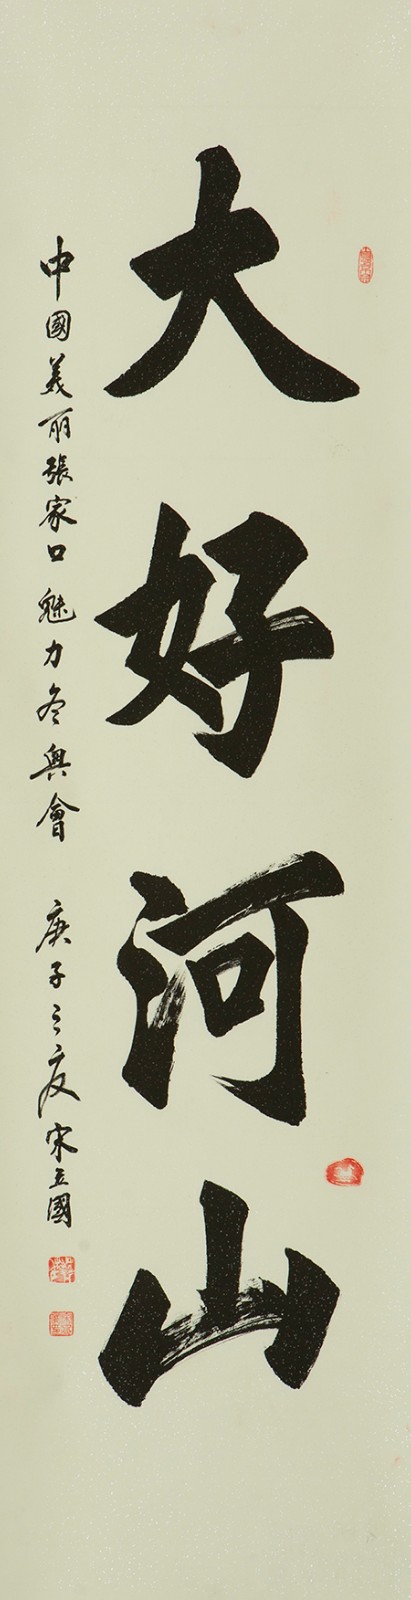 大好河山
中國美丽張家口 魅力冬奥會 庚子之夏 宋立國